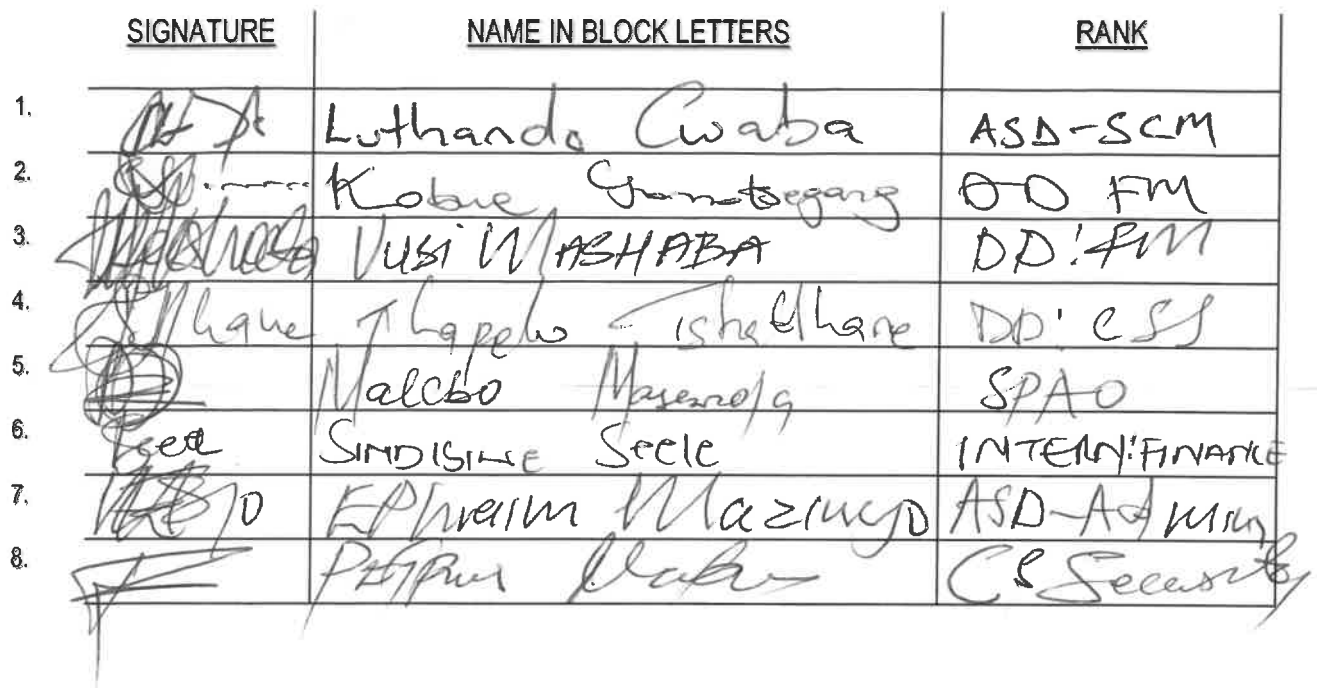 SIGNATURE NAME IN BLOCK LETTERS RANK
1. Luthando Cwaba ASD-SCM
2. Kobue DD FM
3. Vusi MASHABA DD:FM
4. Thapelo Tshetlhane DD: CSS
5. Malebo Masemola SPAO
6. SINDISIWE Seele INTERN:FINANCE
7. EPhraim Mazinyo ASD-Admin
8. CS Security